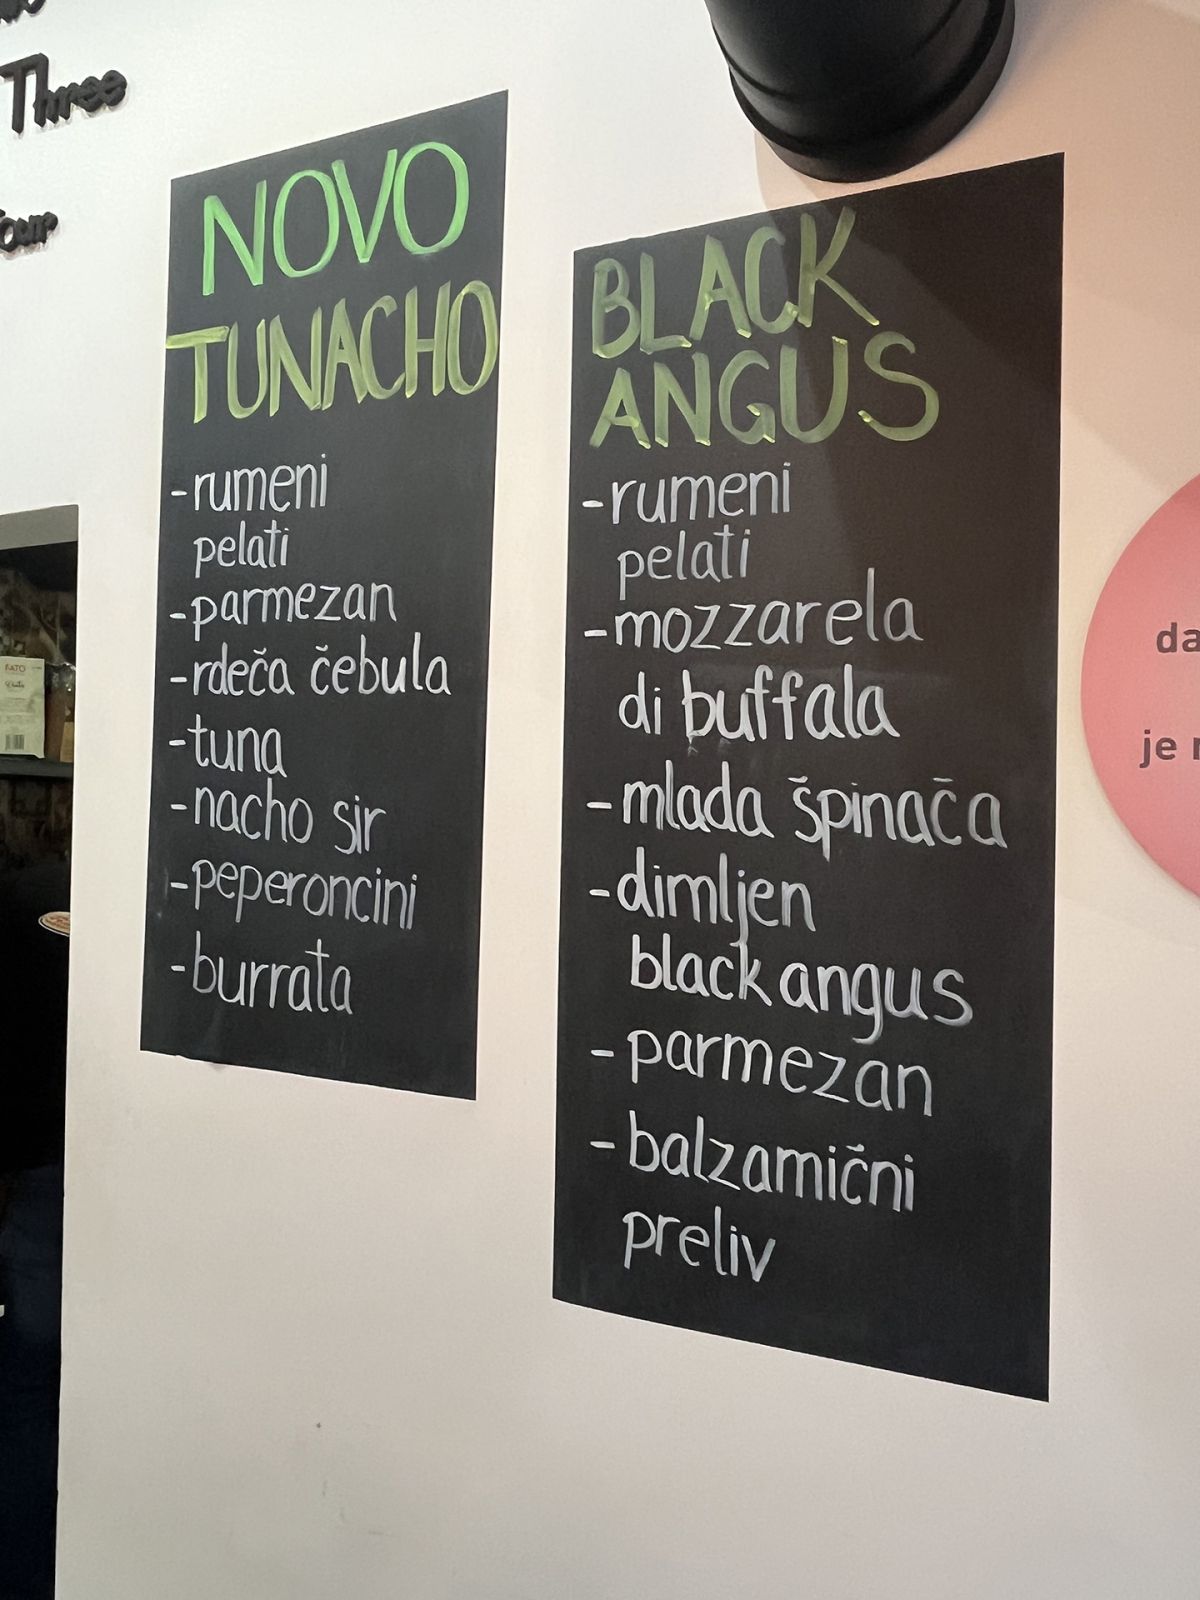 Three
NOVO
TUNACHO
-rumeni
pelati
-parmezan
-rdeča čebula
-tuna
-nacho sir
-peperoncini
-burrata
BLACK
ANGUS
-rumeni
pelati
-mozzarela
di buffala
-mlada špinača
-dimljen
black angus
-parmezan
-balzamični
preliv
da
je